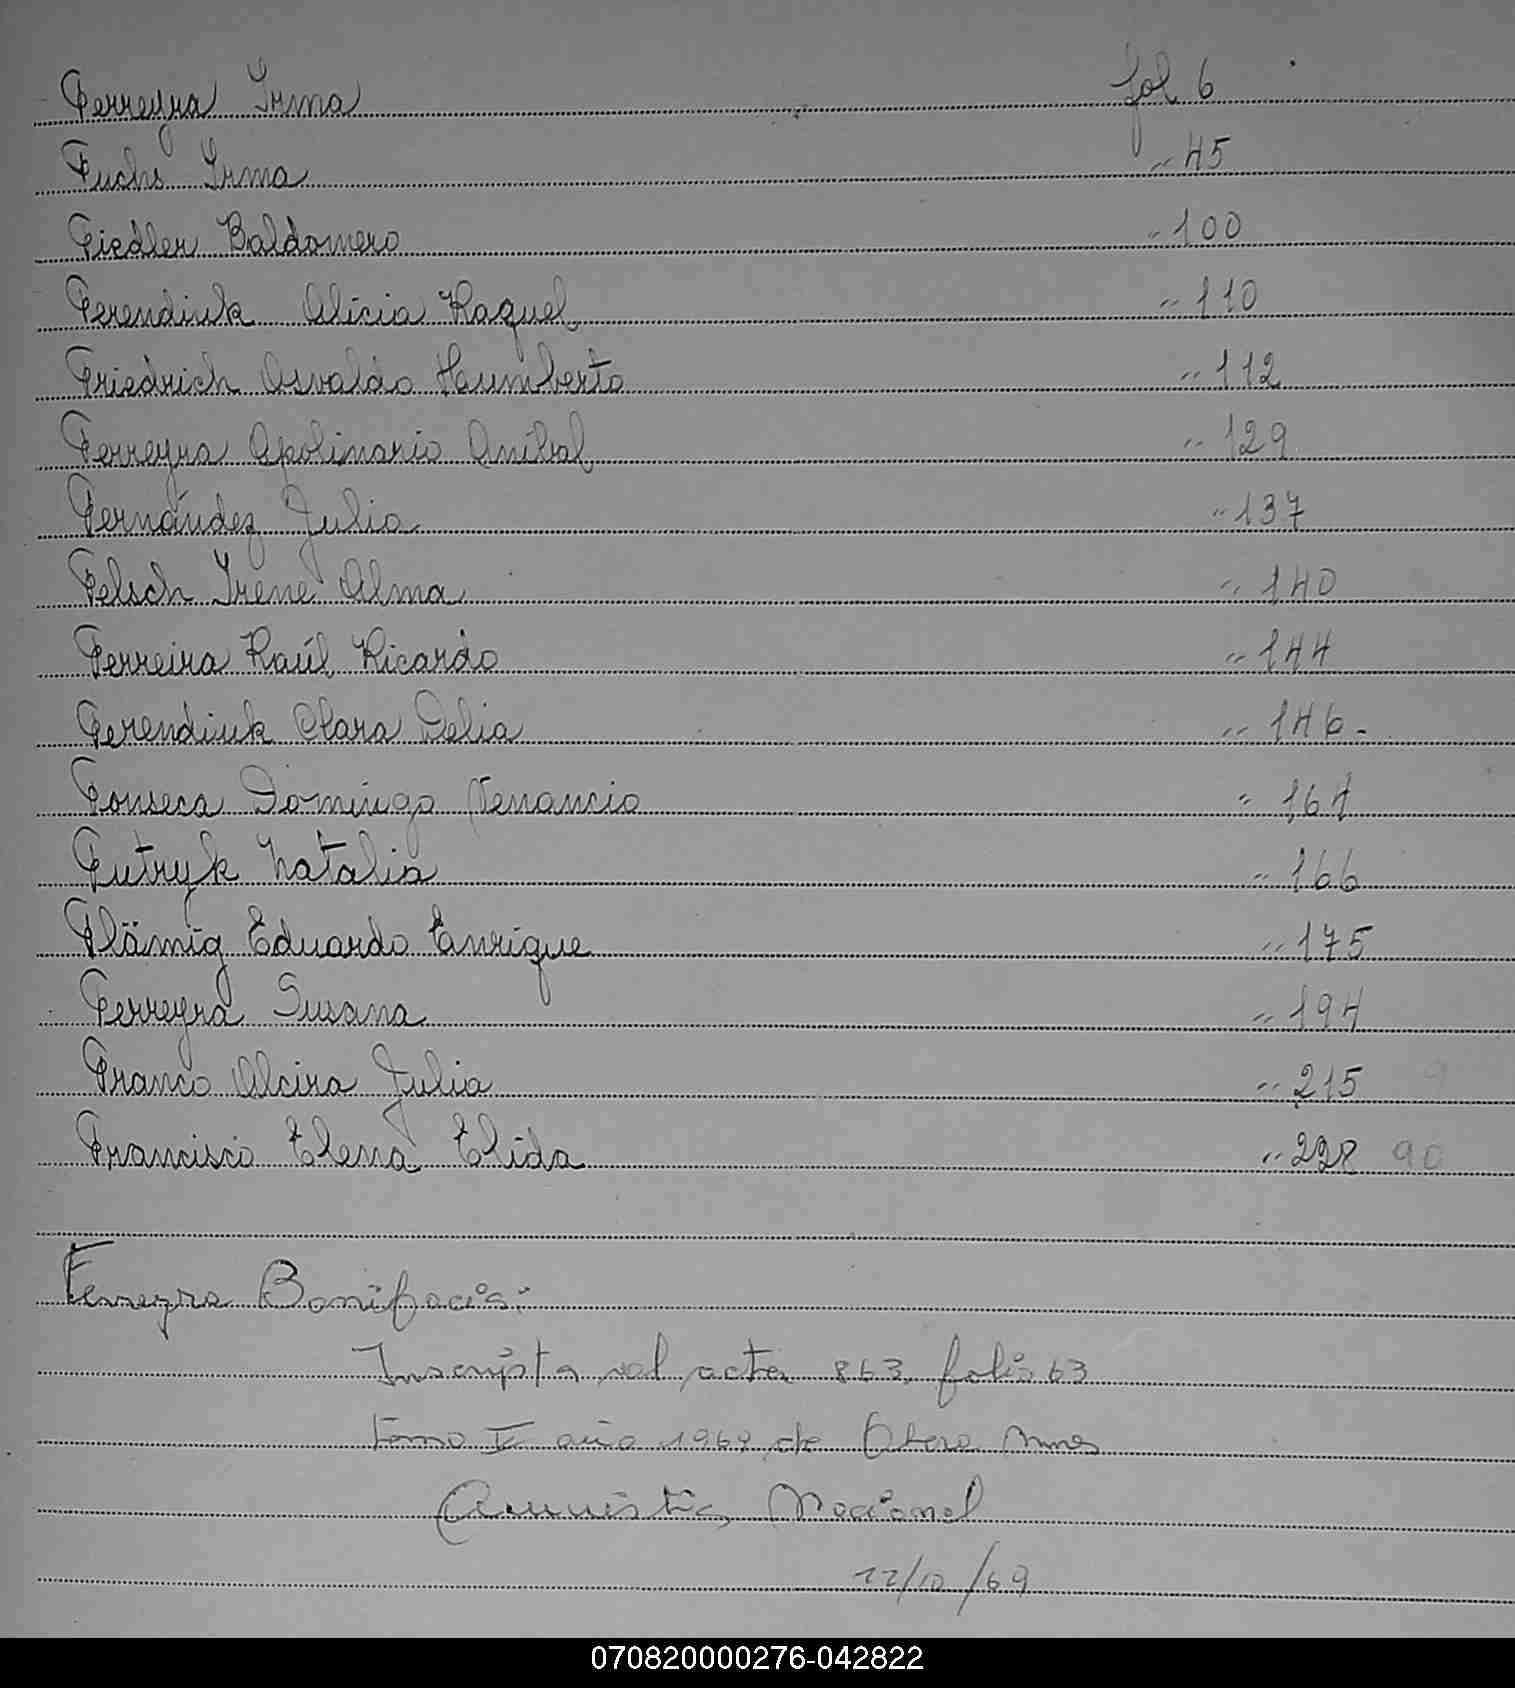 Ferreyra Irma fol 6
Fuchs Irma " 45
Fiedler Baldomero " 100
Ferendiuk Alicia Raquel " 110
Friedrich Osvaldo Humberto " 112
Ferreyra Apolinario Aníbal " 129
Fernández Julia " 137
Felsch Irene Alma " 140
Ferreira Raúl Ricardo " 144
Ferendiuk Clara Delia " 146-
Fonseca Domingo Venancio " 161
Futryk Natalia " 166
Flämig Eduardo Enrique " 175
Ferreyra Susana " 194
Franco Alcira Julia " 215 9
Francisco Elena Elida " 228 90
Ferreyra Bonifacio:
Inscripta al acta 863, folio 63
tomo V año 1969 de Obera Mnes
Amnistia Nacional
22/10/69
070820000276-042822